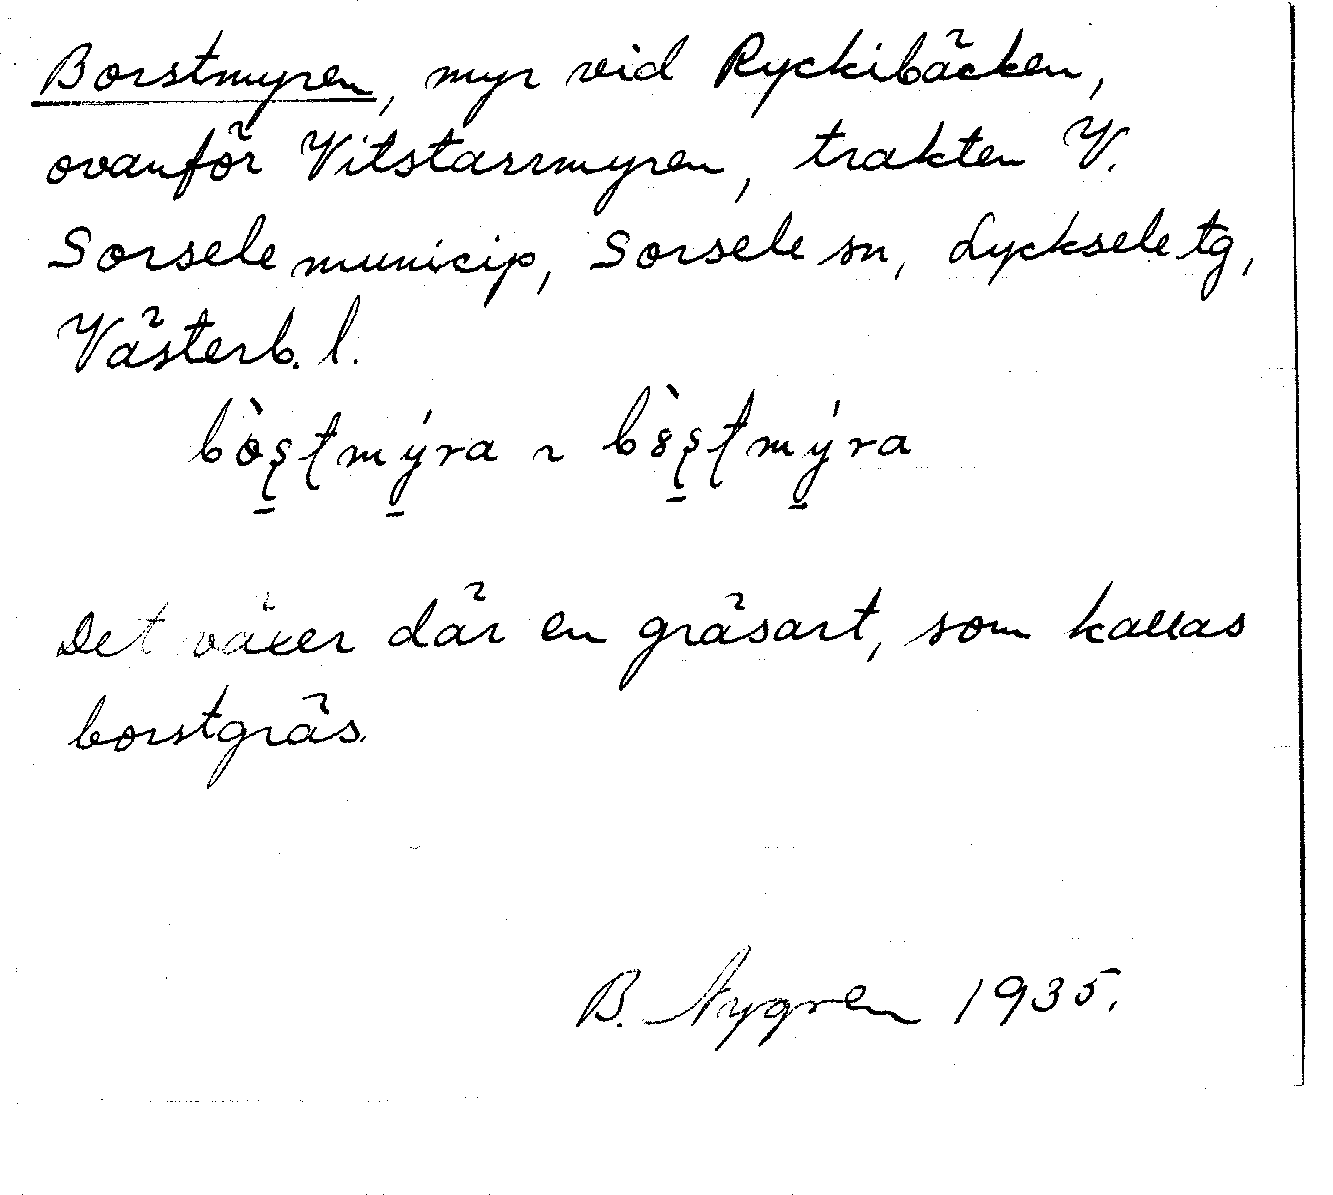 Borstmyren, myr vid Ryckibäcken,
ovanför Vitstarrmyren, trakten V.
Sorsele municip, Sorsele sn, Lycksele tg,
Västerb. l.
bòʂʈmýra ~ b8̀ʂʈmýra
Det växer där en gräsart, som kallas
borstgräs.
B. Nygren 1935.